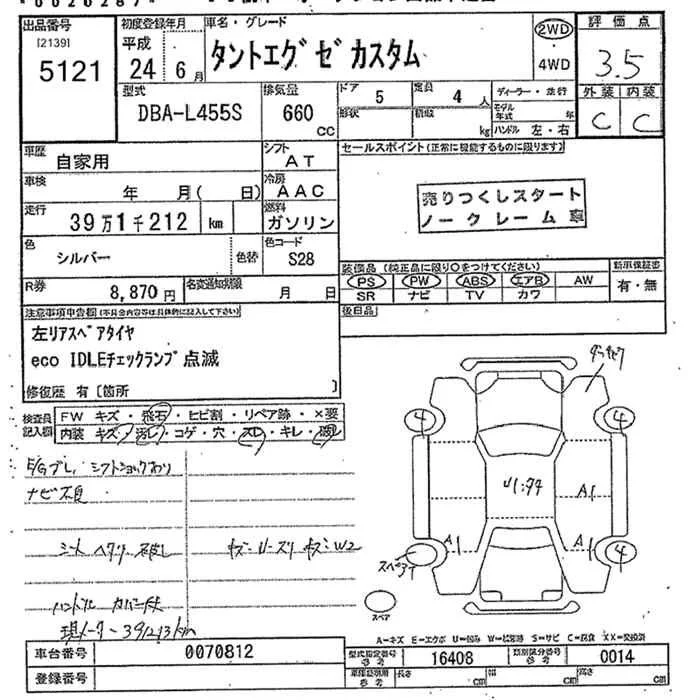 出品番号
[2139]
5121
初度登録年月
平成
24年 6月
車名・グレード
タントエグゼカスタム
2WD
・
4WD
評価点
3.5
外装 内装
C C
型式
DBA-L455S
排気量
660
CC
ドア
5
定員
4人
形状
積載
kg
ディーラー・並行
モデル年式 年
ハンドル 左・右
車歴
自家用
シフト
AT
セールスポイント(正常に機能するものに限ります)
売りつくしスタート
ノークレーム車
車検
年 月( 日)
冷房
AAC
走行
39万1千212 km
燃料
ガソリン
色
シルバー
色替
色コード
S28
装備品(純正品に限り○をつけてください)
PS PW ABS エアB AW
SR ナビ TV カワ
新車保証書
有・無
R券
8,870円
名変通知期限
月 日
後日品
注意事項申告欄(不具合内容等は具体的に記入して下さい)
左リアスペアタイヤ
eco IDLEチェックランプ点滅
修復歴 有〔箇所 〕
検査員記入欄
FW キズ・飛石・ヒビ割・リペア跡・×要
内装 キズ・汚レ・コゲ・穴・スレ・キレ・破レ
E/Gブレ,シフトショックあり
ナビ不良
シートヘタリ・破レ
ハンドルカバー付
現メーター391213km
4
4
A1
A1
A1
スペア
4
スペア
A=キズ E=エクボ U=凹み W=補修跡 S=サビ C=腐食 XX=交換済
車台番号
0070812
型式指定番号
参考
16408
類別区分番号
参考
0014
登録番号
車庫証明用
参考
長さ cm
幅 cm
高さ cm